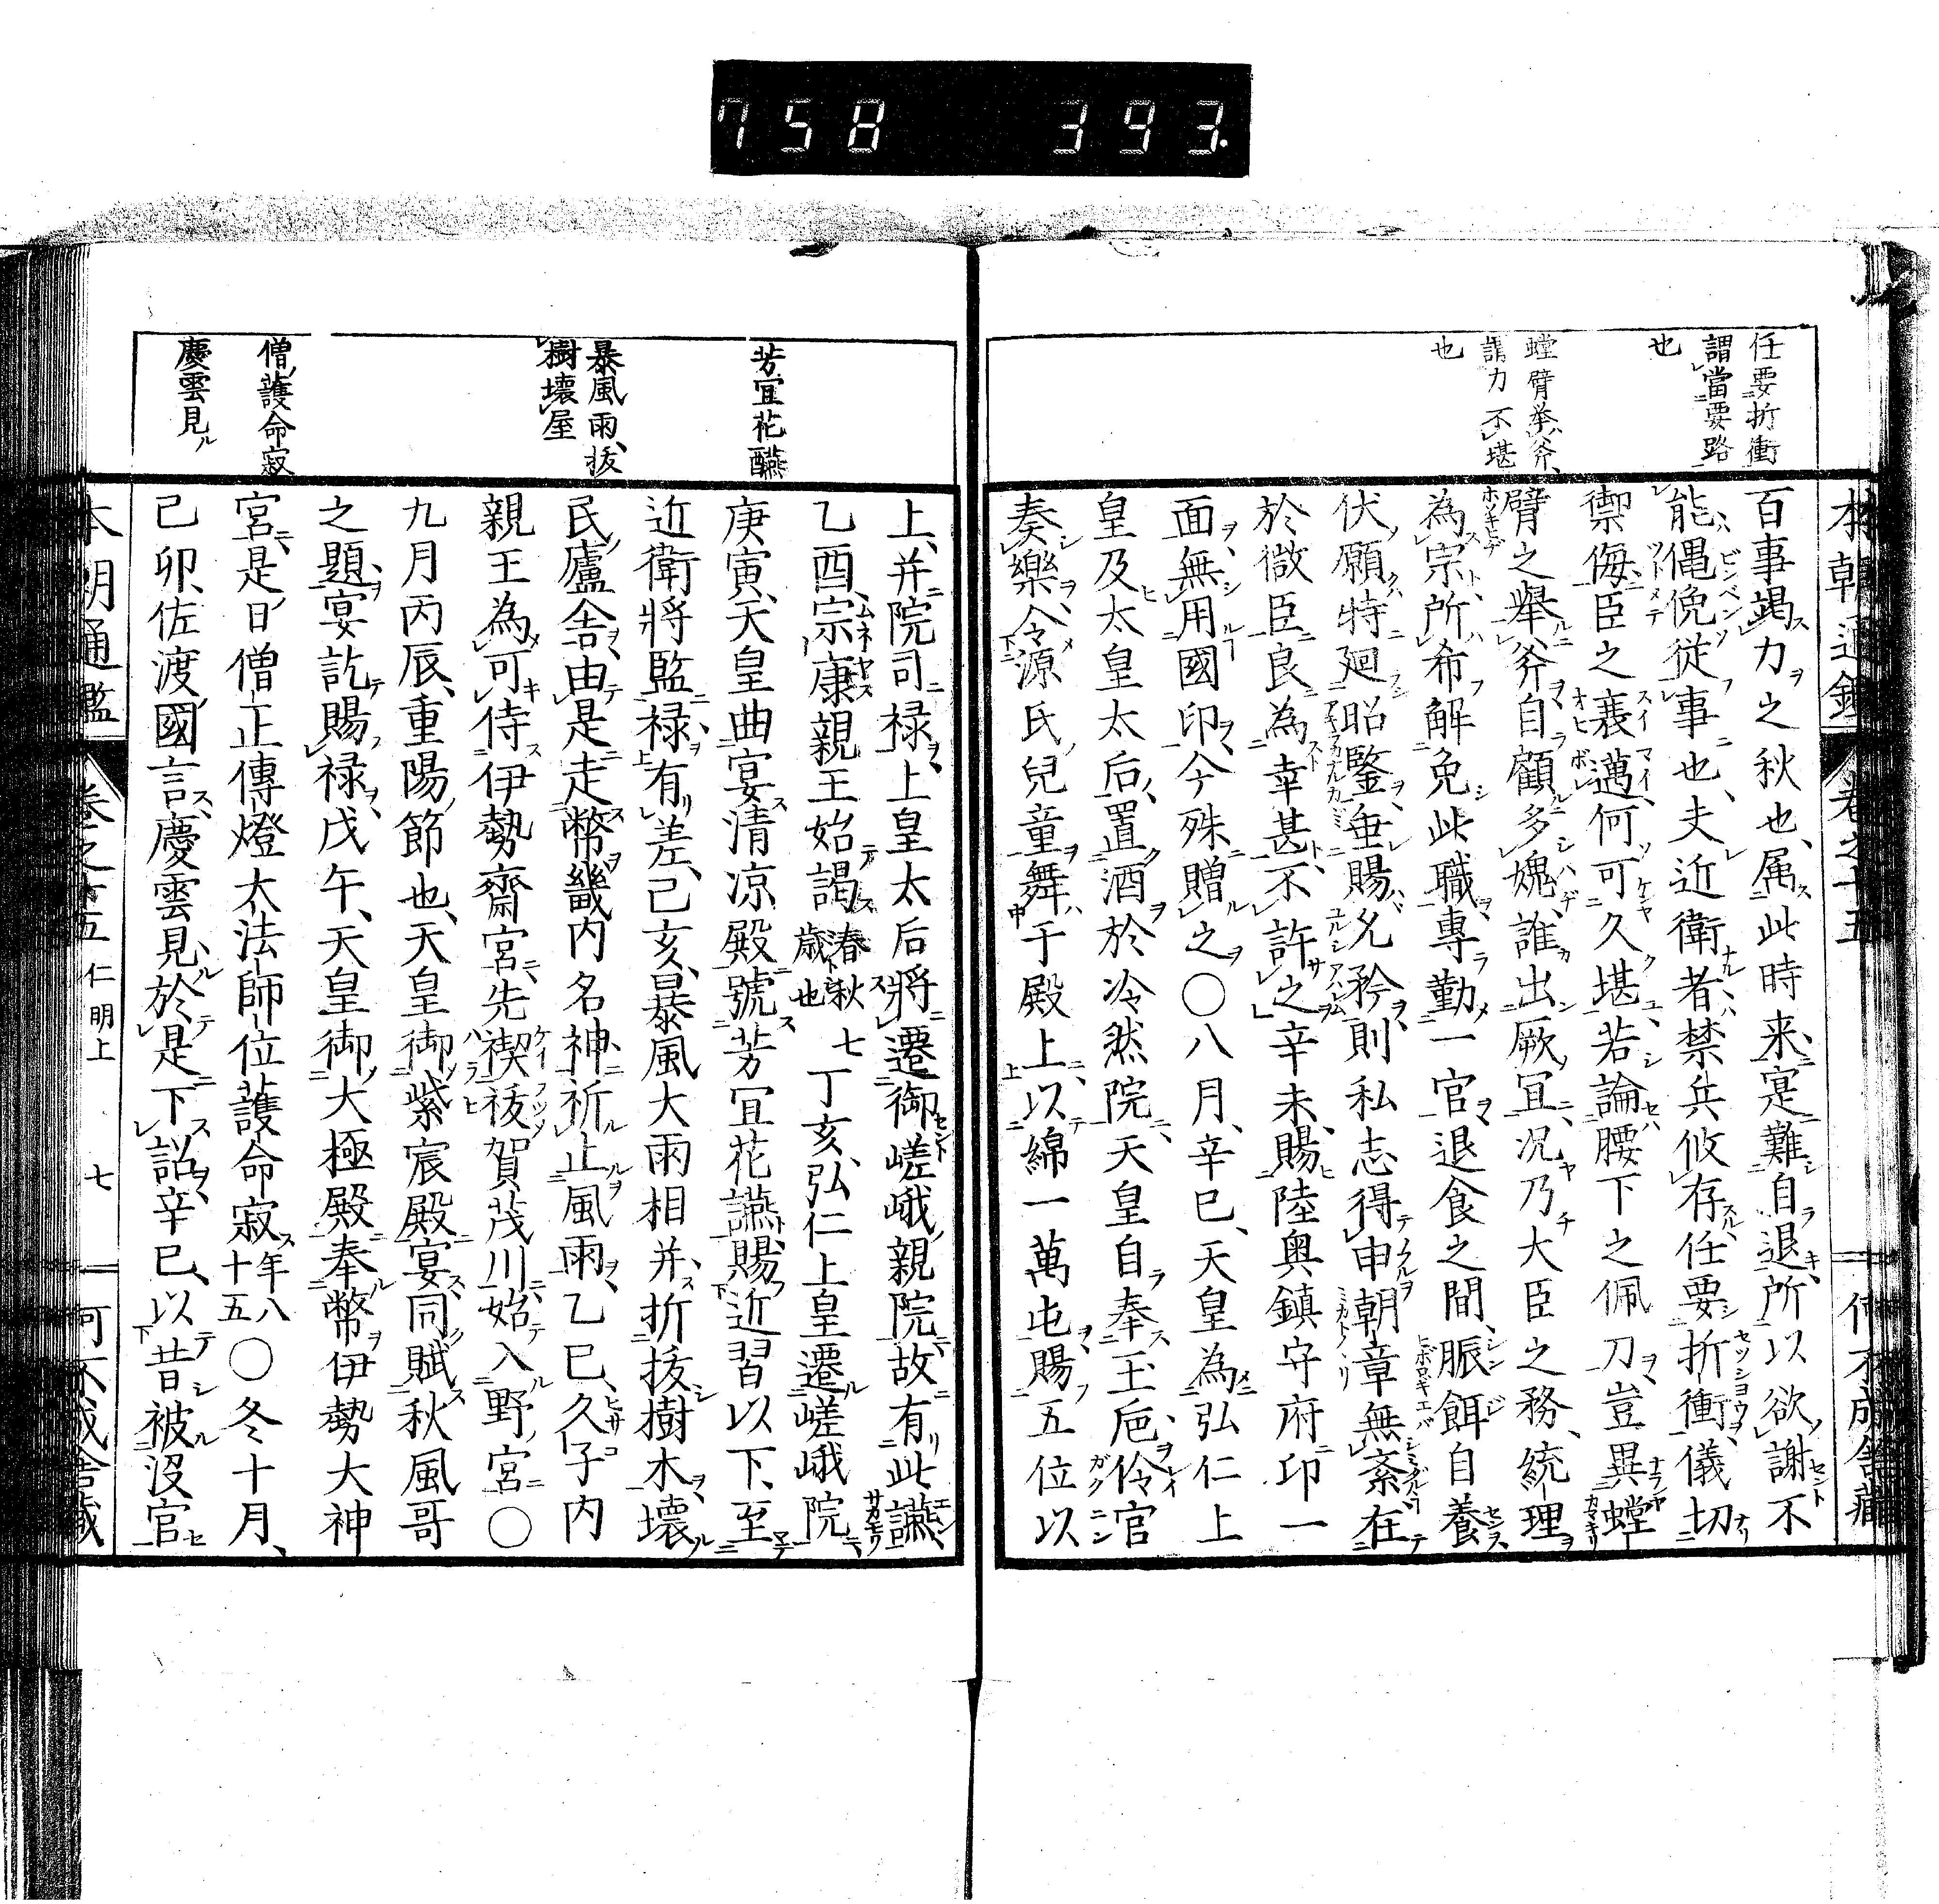 758 393.
本朝通鑑 卷之十五 何不成舎藏
任要折衝
謂當要路
也
螳臂挙斧
謂力不堪
也
百事竭力之秋也、属此時来、寔難自退、所以欲謝不
能、僶俛従事也、夫近衛者禁兵攸存、任要折衝、儀切
禦侮、臣之衰邁、何可久堪、若論腰下之佩刀、豈異螳
臂之舉斧、自顧多媿、誰出厥冝、况乃大臣之務、統理
為宗、所希解免此職、專勤一官、退食之間、脤餌自養
伏願特廻昭鑒、垂賜允矜、則私志得申、朝章無紊、在
於微臣、良為幸甚、不許之、辛未、賜陸奥鎮守府印一
面、無用國印、今殊贈之〇八月、辛巳、天皇為弘仁上
皇及太皇太后、置酒於冷然院、天皇自奉玉巵、伶官
奏樂、令源氏兒童舞于殿上、以綿一萬屯、賜五位以
芳冝花醼
暴風雨、抜
樹壊屋
僧護命寂
慶雲見
上、并院司禄、上皇太后將遷御嵯峨親院、故有此讌、
乙酉、宗康親王始謁 春秋七歳也 丁亥、弘仁上皇遷嵯峨院、
庚寅、天皇曲宴清凉殿、號芳冝花讌、賜近習以下、至
近衛將監禄、有差、己亥、暴風大雨相并、折抜樹木、壊
民廬舎、由是走幣畿内名神、祈止風雨、乙巳、久子内
親王為可侍伊勢齋宮、先禊祓賀茂川、始入野宮〇
九月丙辰、重陽節也、天皇御紫宸殿宴、同賦秋風哥
之題、宴訖賜禄、戊午、天皇御大極殿、奉幣伊勢大神
宮、是日僧正傳燈太法師位護命寂 年八十五 〇冬十月、
己卯、佐渡國言、慶雲見、於是下詔、辛巳、以昔被沒官
本朝通鑑 卷之十五 仁明上 七 何不成舎藏